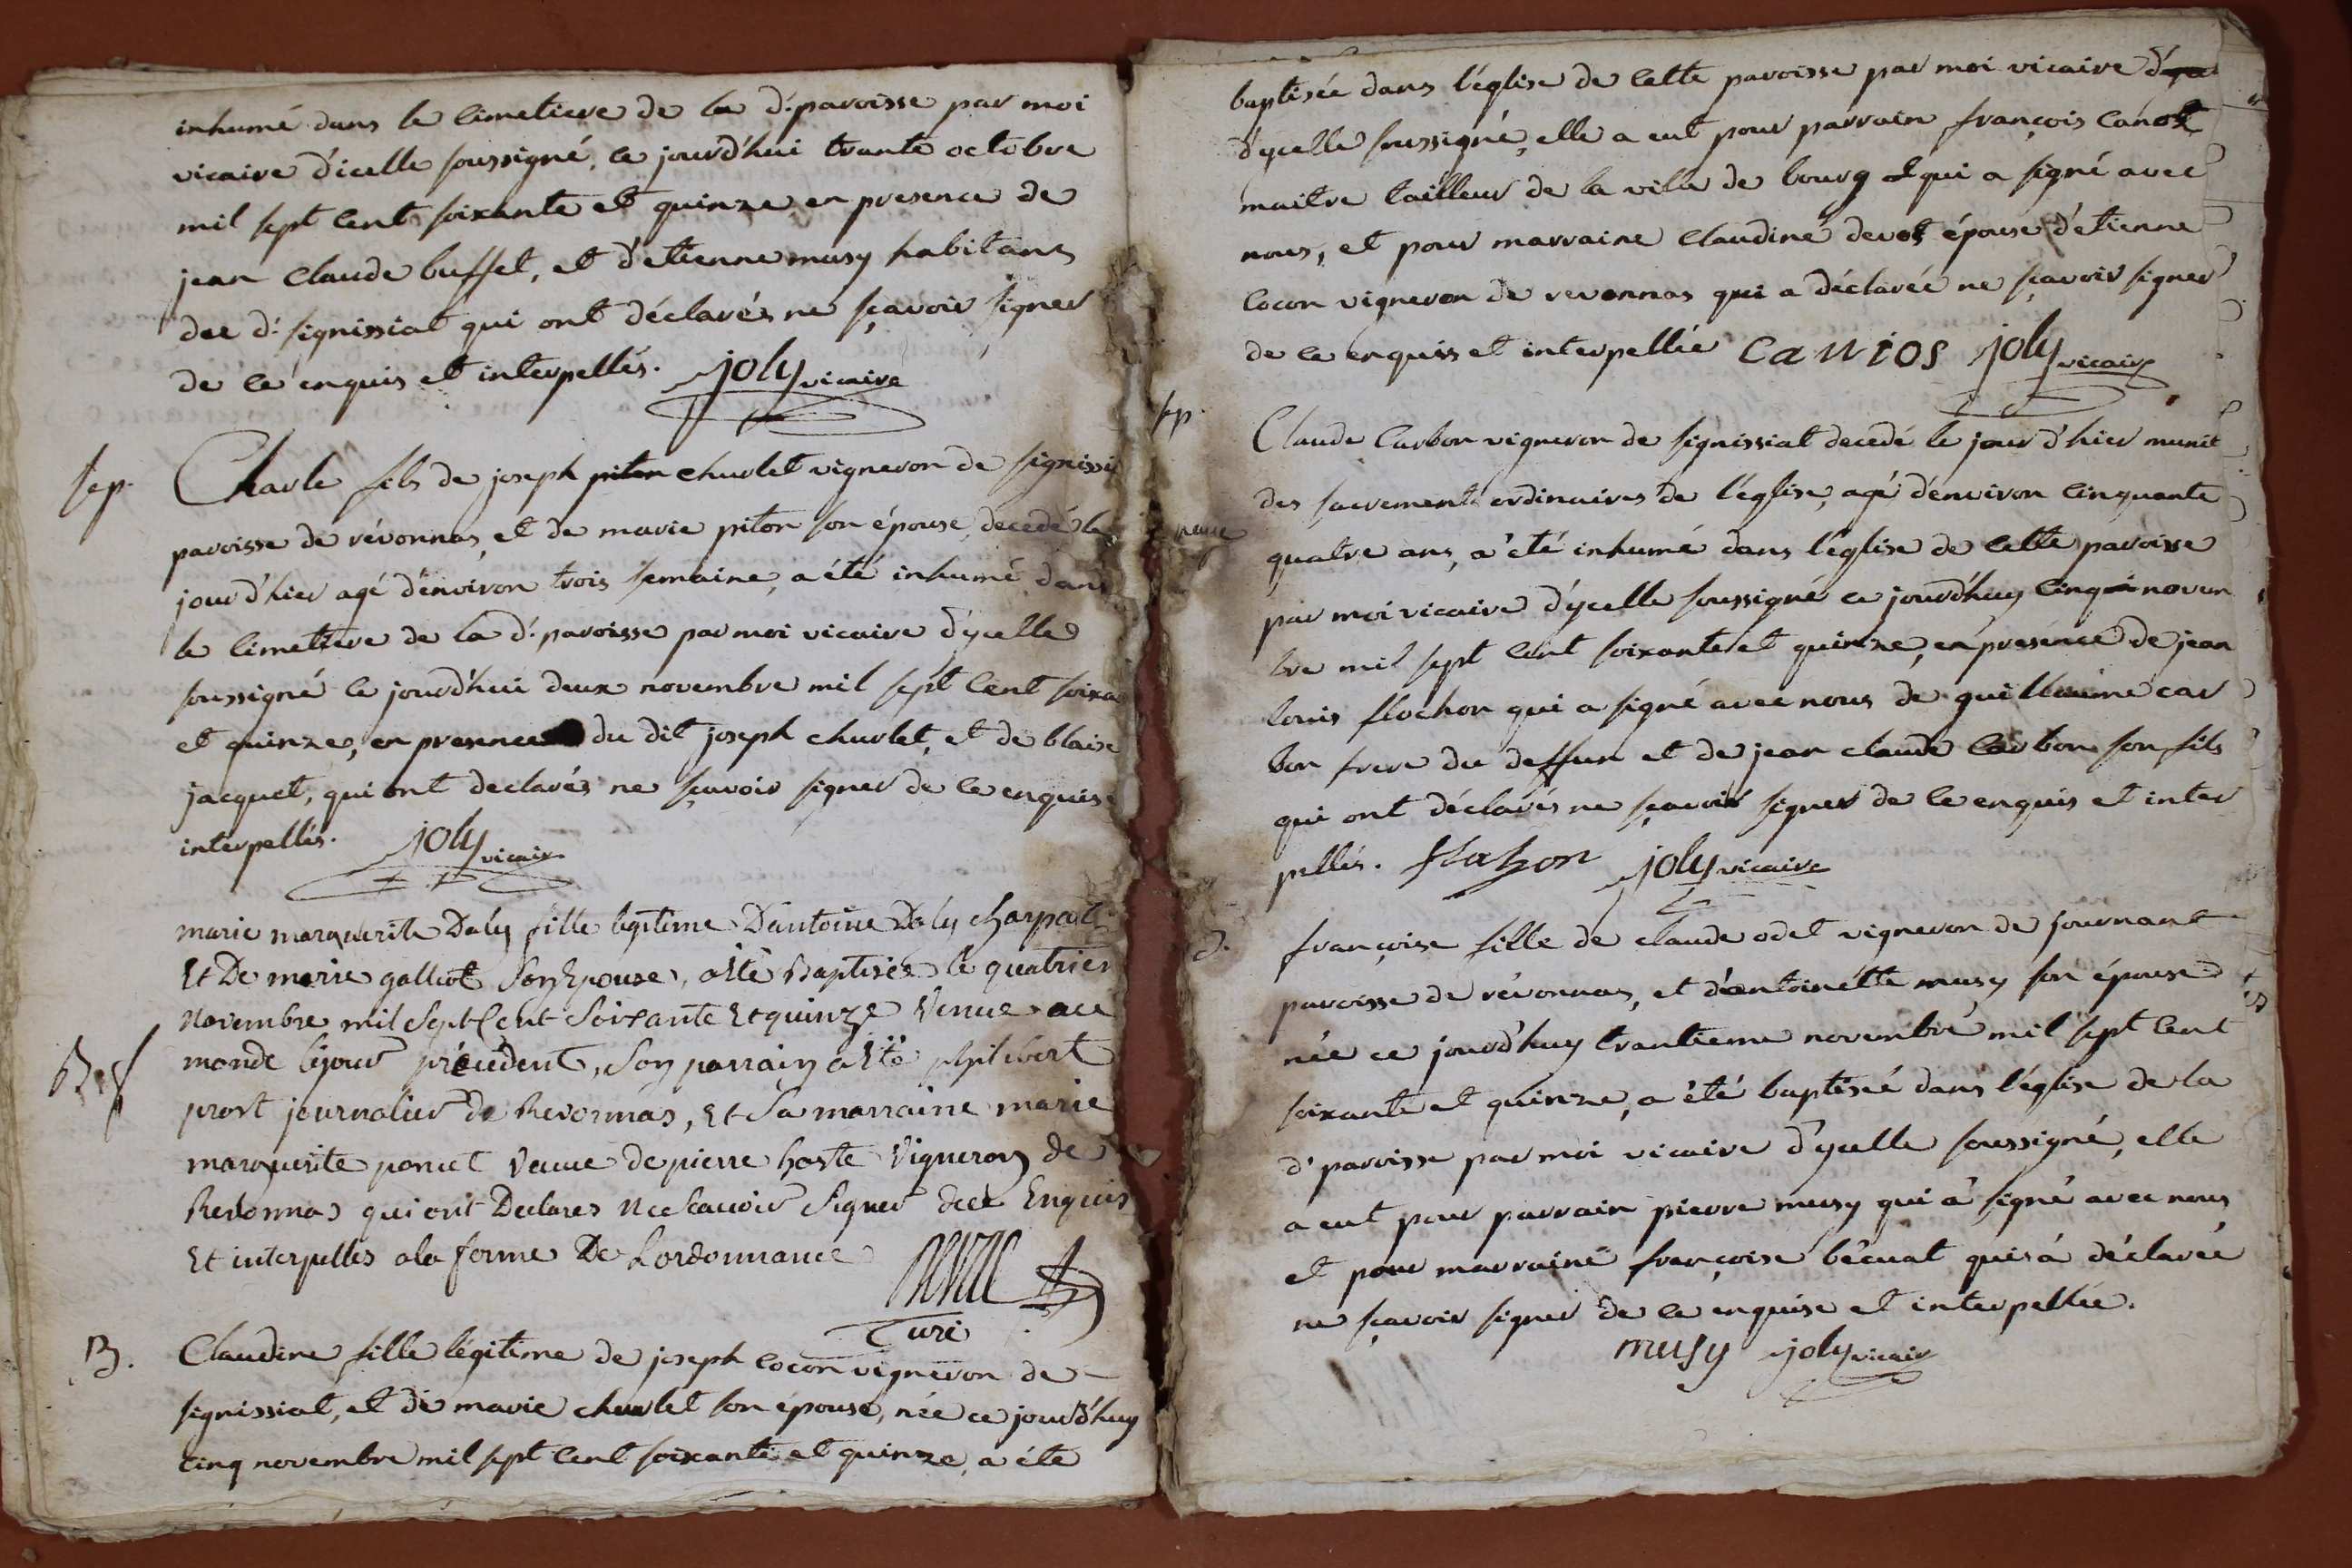 inhumé dans le cimetiere de la d. paroisse par moi
vicaire d'icelle soussigné, ce jourd'hui trante octobre
mil sept cent soixante et quinze en presence de
jean claude buffet, et d'etienne musy habitans
dee d. signissiat qui ont déclarés ne sçavoir signer
de ce enquis et interpellés. joly vicaire
sep. Charle fils de joseph churlet vigneron de signissi
paroisse de révonnas, et de marie piton son épouse, decedé le
jour d'hier agé d'environ trois semaine, a été inhumé dans
le cimetiere de la d. paroisse par moi vicaire d'ycelle
soussigné ce jourd'hui deux novembre mil sept cent soixa
et quinze, en presence du dit joseph churlet, et de blaise
jacquet, qui ont declarés ne sçavoir signer de ce enquis
interpellés. joly vicaire
marie marguerite Daly fille legitime D'antoine Daly charpat
Et De marie galliot Son Epouse, a Eté Baptisée le quatrie
novembre mil Sept Cent Soixante Et quinze Venue a ce
monde le jour précédent, Son parrain a Eté philibert
prost journalier de Revonnas, Et Sa marraine marie
marguerite poncet Veuve de pierre hoste Vigneron de
Revonnas qui ont Declares ne Scauoir Signer de ce Enquis
Et interpellés a la forme De Lordonnance
Curé
B. Claudine fille légitime de joseph cocon vigneron de
signissiat, et de marie churlet son épouse, née ce jourd'huy
cinq novembre mil sept cent soixante et quinze, a éte
baptisée dans l'église de cette paroisse par moi vicaire
d'ycelle soussigné, elle a eut pour parrain françois canot
maitre tailleur de la ville de bourg qui a signé avec
nous, et pour marraine claudine devot épouse d'etienne
cocon vigneron de revonnas qui a déclarée ne sçavoir signer
de ce enquis et interpellée canios joly vicaire
sep. Claude Carbon vigneron de signissiat decedé le jour d'hier munit
des sacrements ordinaires de l'église, agé d'environ cinquante
quatre ans, a été inhumé dans l'église de cette paroisse
par moi vicaire d'ycelle soussigné ce jourd'huy cinq novem
bre mil sept cent soixante et quinze, en presence de jean
louis flochon qui a signé avec nous de guillaume car
bon frere du deffun et de jean claude carbon son fils
qui ont déclarés ne sçavoir signer de ce enquis et inter
pellés. flachon joly vicaire
françoise fille de claude odet vigneron de journant
paroisse de révonnas, et d'antoinétte musy son épouse
née ce jourd'huy trantieme novembre mil sept cent
soixante et quinze, a été baptisée dans l'église de la
d. paroisse par moi vicaire d'ycelle soussigné, elle
a eut pour parrain pierre musy qui a signé avec nous
et pour marraine françoise bécuat qui a déclarée
ne sçavoir signer de ce enquise et interpellée.
musy joly vicaire